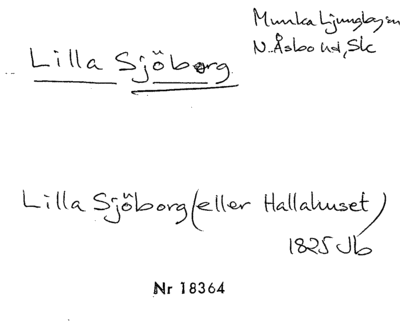 Munka Ljungby sn
N. Åsbo hd, Sk
Lilla Sjöborg
Lilla Sjöborg (eller Hallahuset)
1825 Jb
Nr 18364